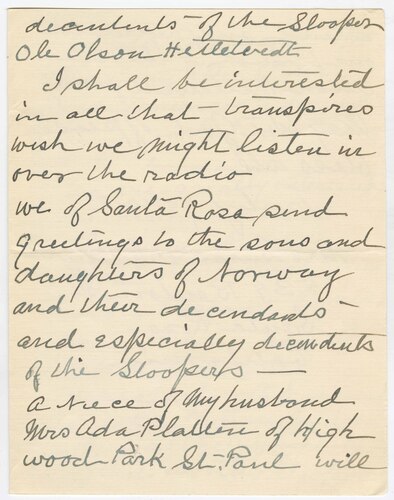 decentents of the Slooper
Ole Olson Hetletvedt
I shall be interested
in all that transpires
wish we might listen in
over the radio
we of Santa Rosa send
greetings to the sons and
daughters of Norway
and their decendants
and especially decendents
of the Sloopers —
a niece of my husband
Mrs Ada Platten of High
wood Park St. Paul will